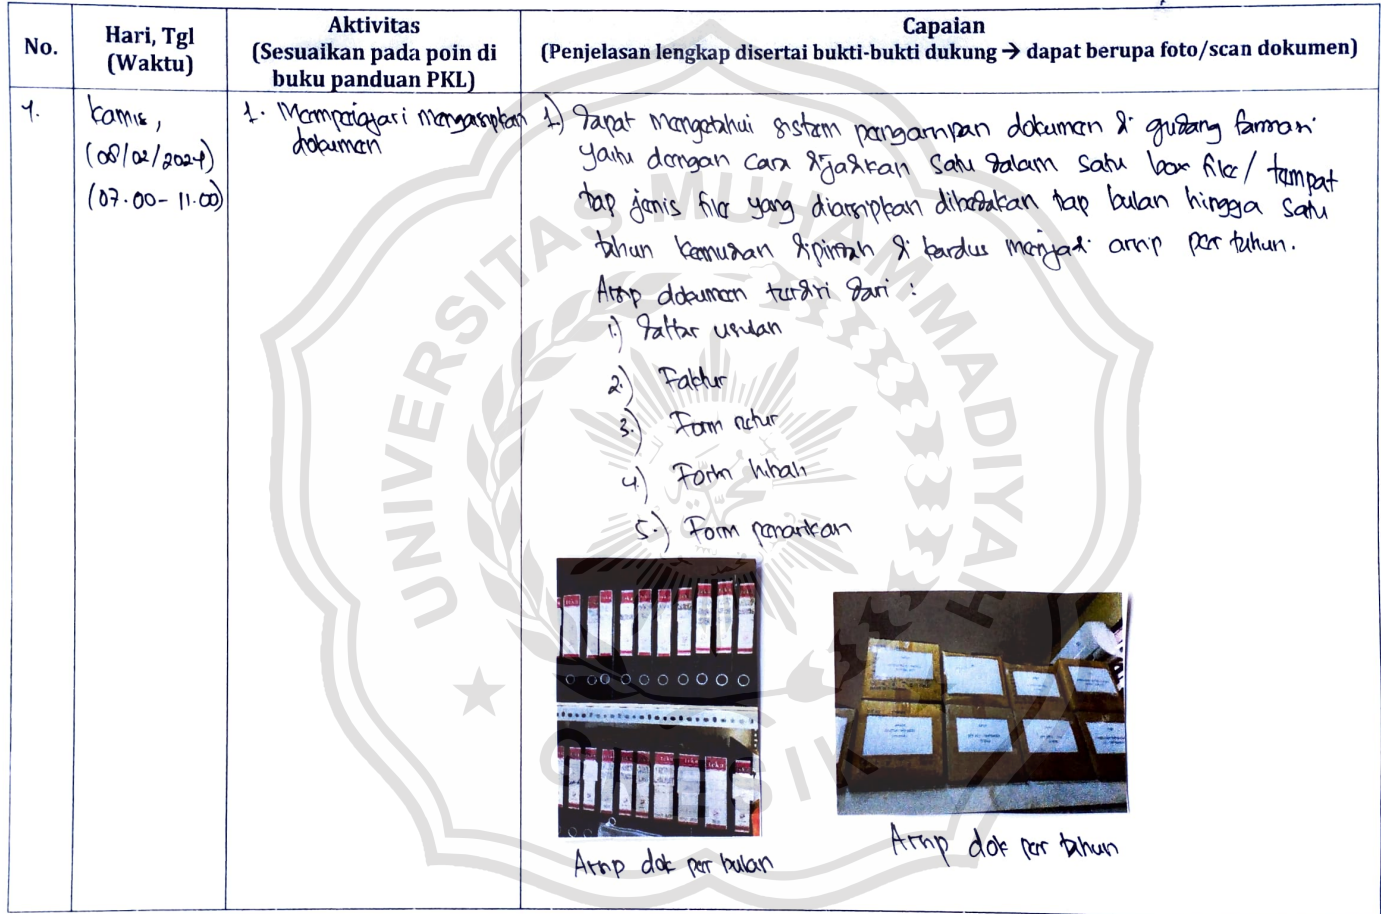 No.
Hari, Tgl
(Waktu)
Aktivitas
(Sesuaikan pada poin di
buku panduan PKL)
Capaian
(Penjelasan lengkap disertai bukti-bukti dukung → dapat berupa foto/scan dokumen)
1.
Kamis,
(08/02/2024)
(07.00 - 11.00)
1. Mempelajari mengarsipkan
dokumen
1) Dapat mengetahui sistem pengarsipan dokumen di gudang farmasi
yaitu dengan cara dijadikan satu dalam satu box file / tempat
tiap jenis file yang diarsipkan dibedakan tiap bulan hingga satu
tahun kemudian dipindah di kardus menjadi arsip per tahun.
Arsip dokumen terdiri dari :
1.) Daftar usulan
2.) Faktur
3.) Form retur
4.) Form hibah
5.) Form penarikan
Arsip dok per bulan
Arsip dok per tahun
UNIVERSITAS MUHAMMADIYAH
GRESIK